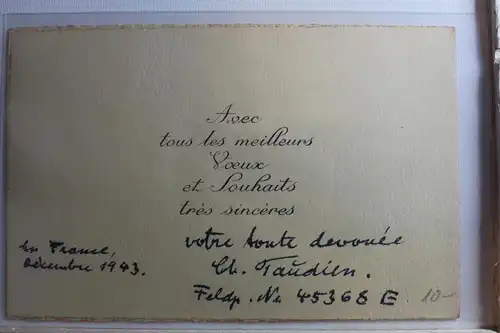 Avec
tous les meilleurs
Vœux
et Souhaits
très sincères
votre toute devouée
En France,
décembre 1943.
Ch. Taudien.
Feldp. Nr. 45368 E.
10-